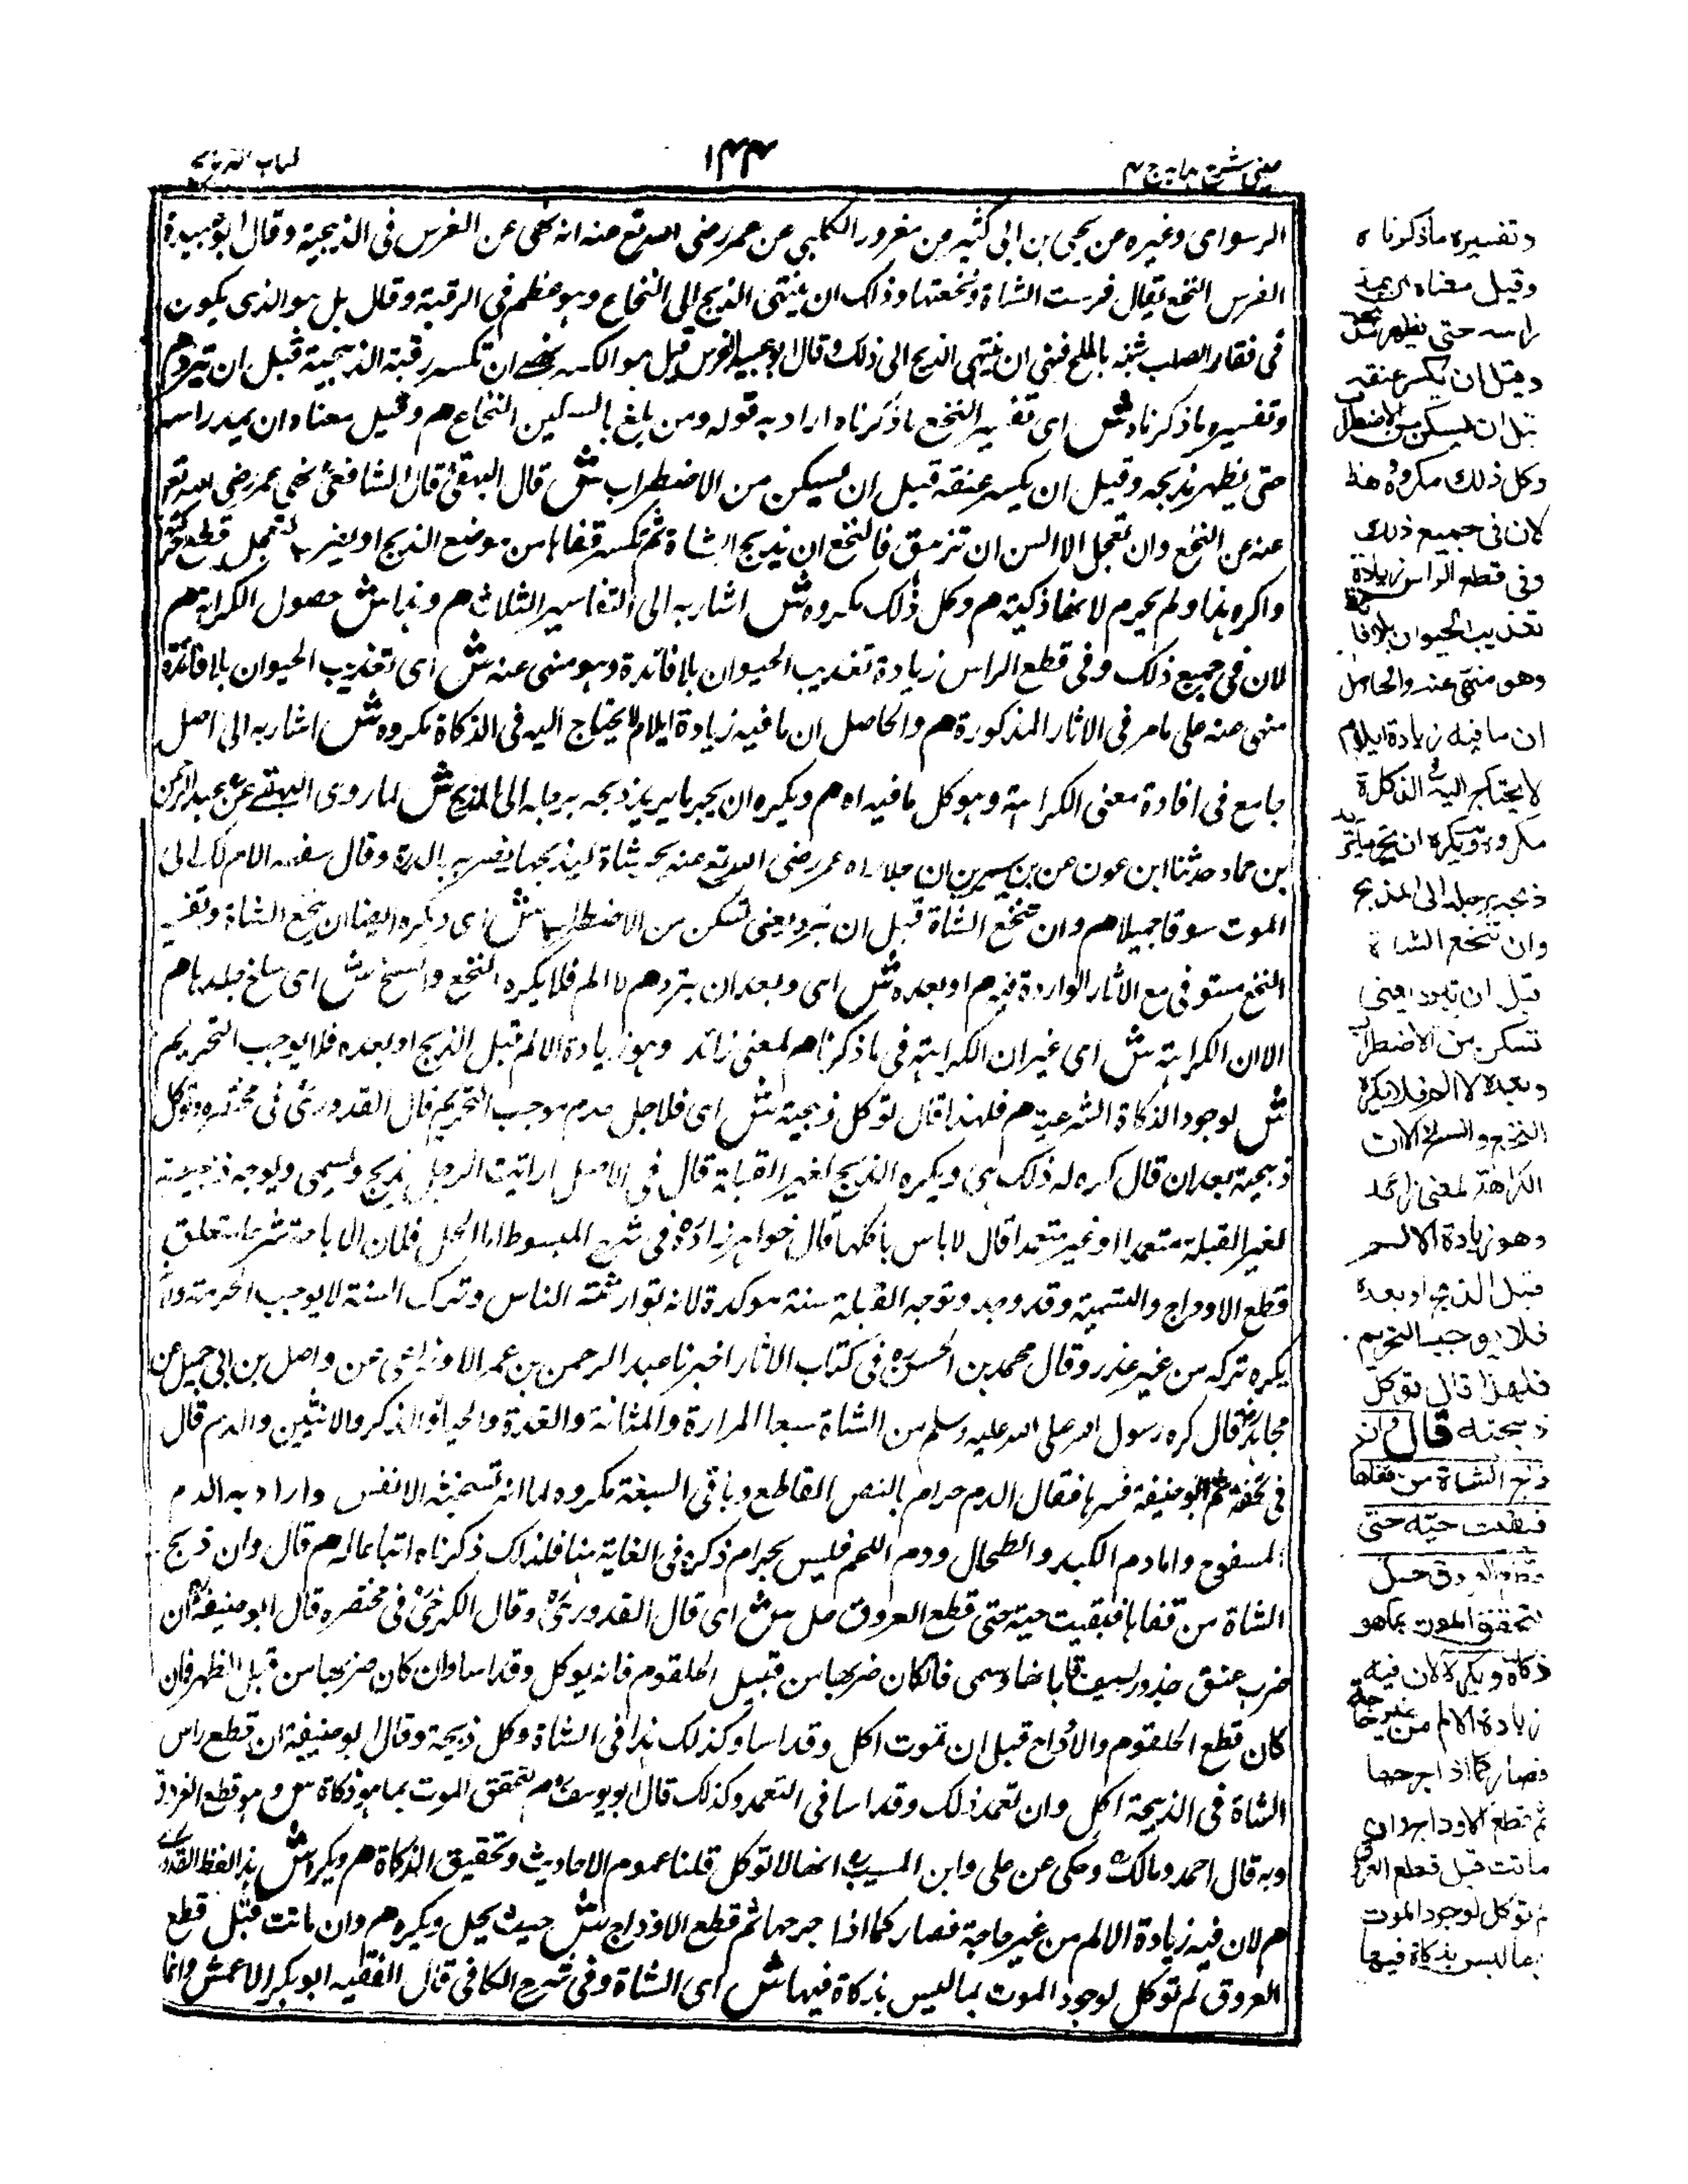 عینی شرح هدایه ج ۴
۱۴۴
کتاب الذبائح
وغيره عن يحيى بن ابى كثير عن الكلبي عن عمر رضى الله تع عنه انه نهى عن الفرس فى الذبيحة وقال ابو عبيدة
الفرس النخع يقال فرست الشاة ونخعتها وذلك ان ينتهى الذبح الى النخاع وهو عظم فى الرقبة وقال بل هو الذى يكون
فى فقار الصلب بالمخ ان ينتهى الذبح الى ذلك وقال ابو عبيد الفرس قيل هو الكسر ان تكسر رقبة الذبيحة قبل ان تبرد هم
وتفسيره ما ذكرناه ش اى تفسير النخع ما ذكرناه اراد به قوله ومن بلغ بالسكين النخاع هم وقيل معناه ان يمد راسه
حتى يظهر مذبحه وقيل ان يكسر عنقه قبل ان يسكن من الاضطراب ش قال البيهقى قال الشافعى نهى عمر رضى الله تع
عنه عن النخع وان تعجل الانفس ان تزهق فالنخع ان يذبح الشاة ثم تكسر قفاها من موضع الذبح او يضرب لتعجيل قطع
واكره هذا ولم يحرم لانها ذكية هم وكل ذلك مكروه ش اشار به الى التفاسير الثلاث هم وهذا ش حصول الكراهة هم
لان فى جميع ذلك وفى قطع الراس زيادة تعذيب الحيوان بلا فائدة وهو منهى عنه ش اى تعذيب الحيوان بلا فائدة
منهى عنه على ما مر فى الاثار المذكورة هم والحاصل ان ما فيه زيادة ايلام لا يحتاج اليه فى الذكاة مكروه ش اشار به الى اصل
جامع فى افادة معنى الكراهة وهو كل ما فيه اه هم ويكره ان يجر ما يريد ذبحه برجله الى المذبح ش لما روى البيهقى عن عبد الرحمن
بن حماد حدثنا ابن عون عن بن سيرين ان رآه عمر رضى الله تع عنه يجر شاة ليذبحها يضربه بالدرة وقال سقها لا ام لك الى
الموت سوقا جميلا هم وان تنخع الشاة قبل ان تبرد يعنى تسكن من الاضطراب ش اى ويكره ايضا ان ينخع الشاة وتفسير
النخع مستوفى مع الاثار الواردة فيه هم او بعده ش اى وبعد ان تبرد هم لا الم فلا يكره النخع والسلخ ش اى سلخ جلدها هم
الا ان الكراهة ش اى غير ان الكراهة فى ما ذكرنا هم لمعنى زائد وهو زيادة الالم قبل الذبح او بعده فلا يوجب التحريم
ش لوجود الذكاة الشرعية هم فلهذا قال توكل ذبيحته ش اى فلاجل عدم موجب التحريم قال القدورى فى مختصره وتوكل
ذبيحته بعد ان قال كره له ذلك ويكره الذبح لغير القبلة قال فى الاصل ارايت الرجل يذبح ويسمى ويوجه ذبيحته
لغير القبلة متعمدا او غير متعمد قال لا باس باكلها قال خواهر زاده فى شرح المبسوط اما الحل فلان الاباحة شرعا متعلق
قطع الاوداج والتسمية وقد وجد وتوجه القبلة سنة موكدة لانه توارثته الناس وترك السنة لا يوجب الحرمة
يكره تركه من غير عذر وقال محمد بن الحسن فى كتاب الاثار اخبرنا عبد الرحمن بن عمر الاوزاعى عن واصل بن ابى جميل عن
مجاهد قال كره رسول الله صلى الله عليه وسلم من الشاة سبعا المرارة والمثانة والغدة والحياء والذكر والانثيين والدم قال
فى تحفة ابو حنيفة فسرها فقال الدم حرام بالنص القاطع وباقى السبعة مكروه لما انه تستخبثه الانفس واراد به الدم
المسفوح واما دم الكبد والطحال ودم اللحم فليس بحرام ذكره فى الغاية هنا فلذلك ذكرناه اتباعا له هم قال وان ذبح
الشاة من قفاها فبقيت حية حتى قطع العروق حل ش اى قال القدورى وقال الكرخى فى مختصره قال ابو حنيفة ان
ضرب عنق جزور بسيف فابانها وسمى فان كان ضربها من قبل الحلقوم فانه يوكل وقد اسا وان كان ضربها من قبل الظهر فان
كان قطع الحلقوم والاوداج قبل ان تموت اكل وقد اسا وكذلك هذا فى الشاة وكل ذبيحة وقال ابو حنيفة ان قطع راس
الشاة فى الذبيحة اكل وان تعمد ذلك وقد اسا فى التعمد وكذلك قال ابو يوسف هم لتحقق الموت بما هو ذكاة ش وهو قطع العروق
وبه قال احمد ومالك وحكى عن على وابن المسيب انها لا توكل قلنا عموم الاحاديث وتحقيق الذكاة هم ويكره ش هذا لفظ القدورى
هم لان فيه زيادة الالم من غير حاجة فصار كما اذا جرحها ثم قطع الاوداج ش حيث يحل ويكره هم وان ماتت قبل قطع
العروق لم توكل لوجود الموت بما ليس بذكاة فيها ش اى الشاة وفى شرح الكافى قال الفقيه ابو بكر الاعمش وانما
وتفسيره ما ذكرناه
وقيل معناه ان يمد
راسه حتى يظهر مذبحه
وقيل ان يكسر عنقه
قبل ان يسكن من الاضطراب
وكل ذلك مكروه وهذا
لان فى جميع ذلك
وفى قطع الراس زيادة
تعذيب الحيوان بلا فائدة
وهو منهى عنه والحاصل
ان ما فيه زيادة ايلام
لا يحتاج اليه فى الذكاة
مكروه ويكره ان يجر ما يريد
ذبحه برجله الى المذبح
وان تنخع الشاة
قبل ان تبرد يعنى
تسكن من الاضطراب
وبعده لا الم فلا يكره
النخع والسلخ الا ان
الكراهة لمعنى زائد
وهو زيادة الالم
قبل الذبح او بعده
فلا يوجب التحريم
فلهذا قال توكل
ذبيحته قال وان
ذبح الشاة من قفاها
فبقيت حية حتى
قطع العروق حل
لتحقق الموت بما هو
ذكاة ويكره لان فيه
زيادة الالم من غير حاجة
فصار كما اذا جرحها
ثم قطع الاوداج وان
ماتت قبل قطع العروق
لم توكل لوجود الموت
بما ليس بذكاة فيها